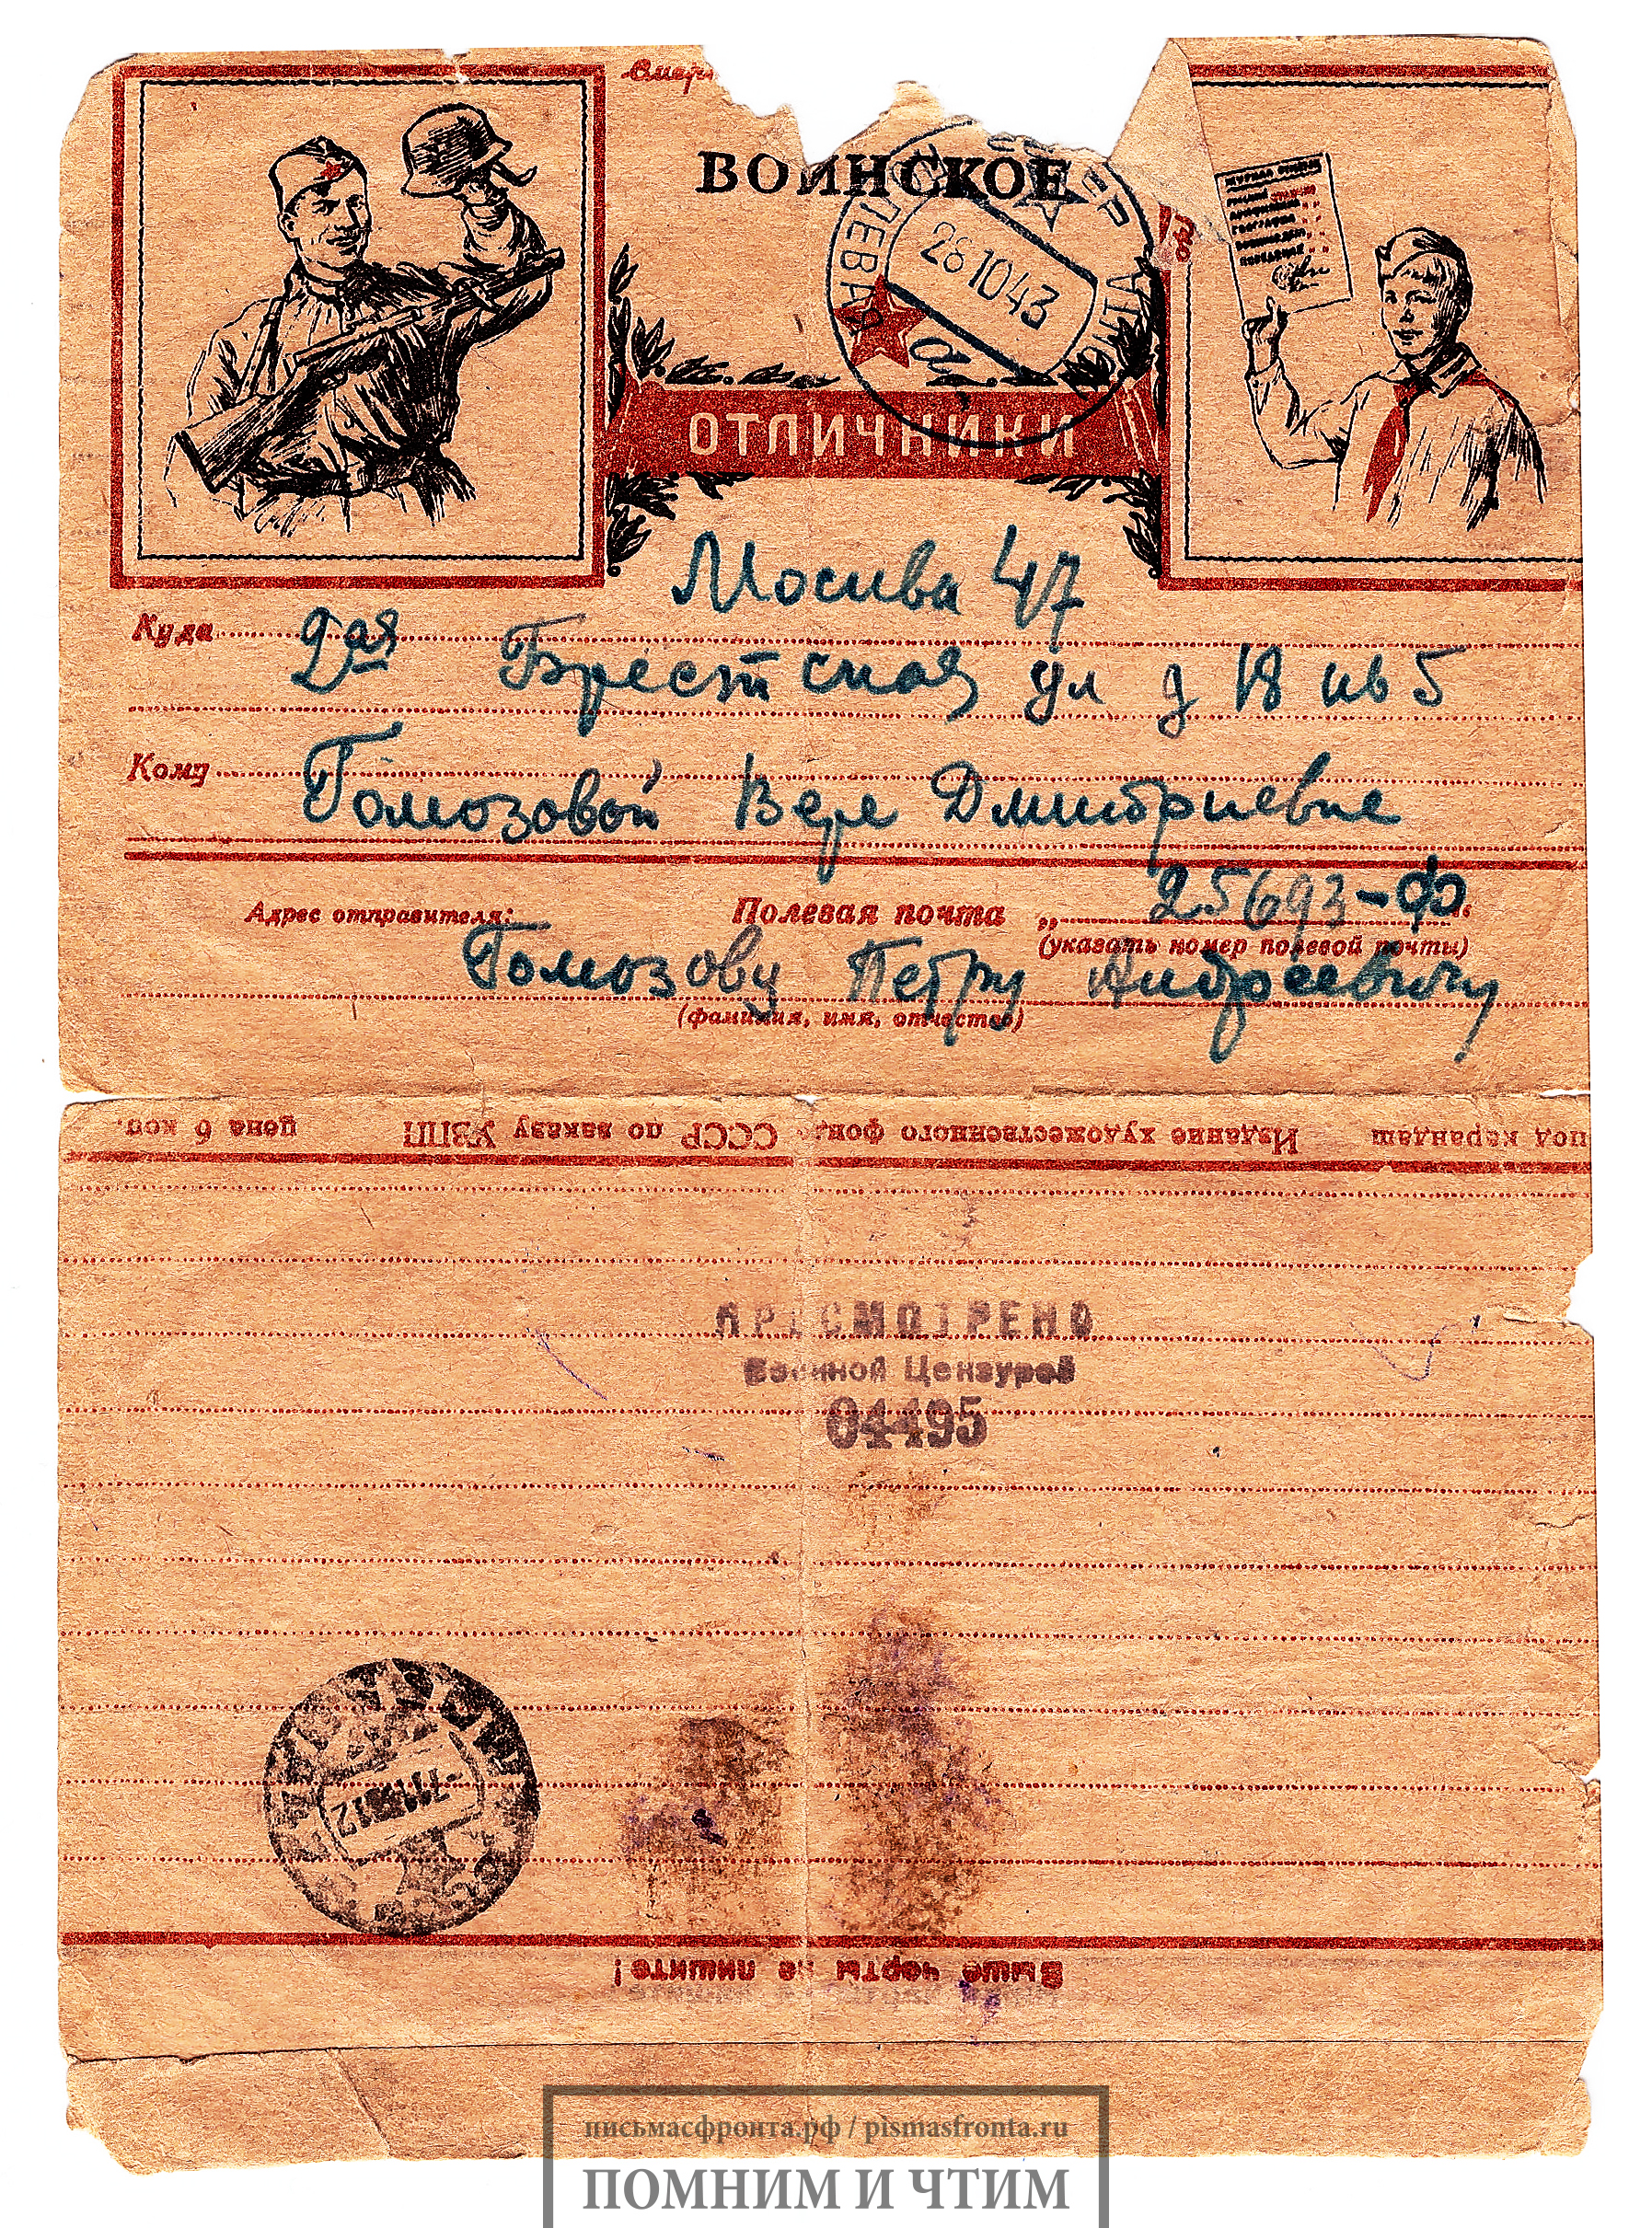 ВОИНСКОЕ
ПОЛЕВАЯ
28 10 43
ОТЛИЧНИКИ
Москва 47
Куда 2ая Брестская ул д 18 кв 5
Кому
Гомозовой Вере Дмитриевне
Адрес отправителя: Полевая почта „25693-Ф“
(указать номер полевой почты)
Гомозову Петру Андреевичу
(фамилия, имя, отчество)
под карандаш Издание художественного фон. СССР по заказу УВПП цена 6 коп.
ПРОСМОТРЕНО
Военной Цензурой
04495
Выше черты не пишите!
письмасфронта.рф / pismasfronta.ru
ПОМНИМ И ЧТИМ